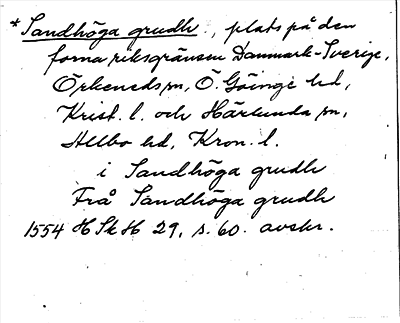 *Sandhöga grudh., plats på den
forna riksgränsen Danmark-Sverige,
Örkeneds sn, Ö. Göinge hd,
Krist. l. och Härlunda sn,
Allbo hd, Kron. l.
i Sandhöga grudh
Frå Sandhöga grudh
1554 HSkH 29, s. 60. avskr.